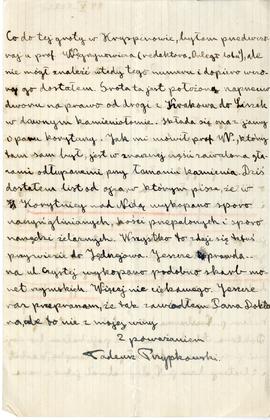 Co do tej groty w Kryspinowie, byłem przedwczo-
raj u prof. Węgrzynowicza (redaktora „Orlego Lotu"), ale
nie mógł znaleść wtedy tego numeru i dopiero wczo-
raj go dostałem. Grota ta jest położona naprzeciw
dworu na prawo od drogi z Krakowa do Liszek
w dawnym kamieniołomie. Składa się ona z jamy
o paru korytarzy. Jak mi mówił prof. W., który
tam sam był, jest w znacznej części zawalona gła-
zami odłupanymi przy łamaniu kamienia. Dziś
dostałem list od ojca, w którym pisze, że w
Korytnicy nad Nidą wykopano sporo
naczyń glinianych, kości przepalonych i sporo
narzędzi żelaznych. Wszystko to zdaje się ktoś
przywiezie do Jędrzejowa. Jeszcze
na ul. wykopano podobno skarb mo-
net rzymskich. Więcej nic ciekawego. Jeszcze
raz przepraszam, że tak zawiodłem Pana Dokto-
ra, ale to nie z mojej winy
Z poważaniem
Tadeusz Przypkowski.